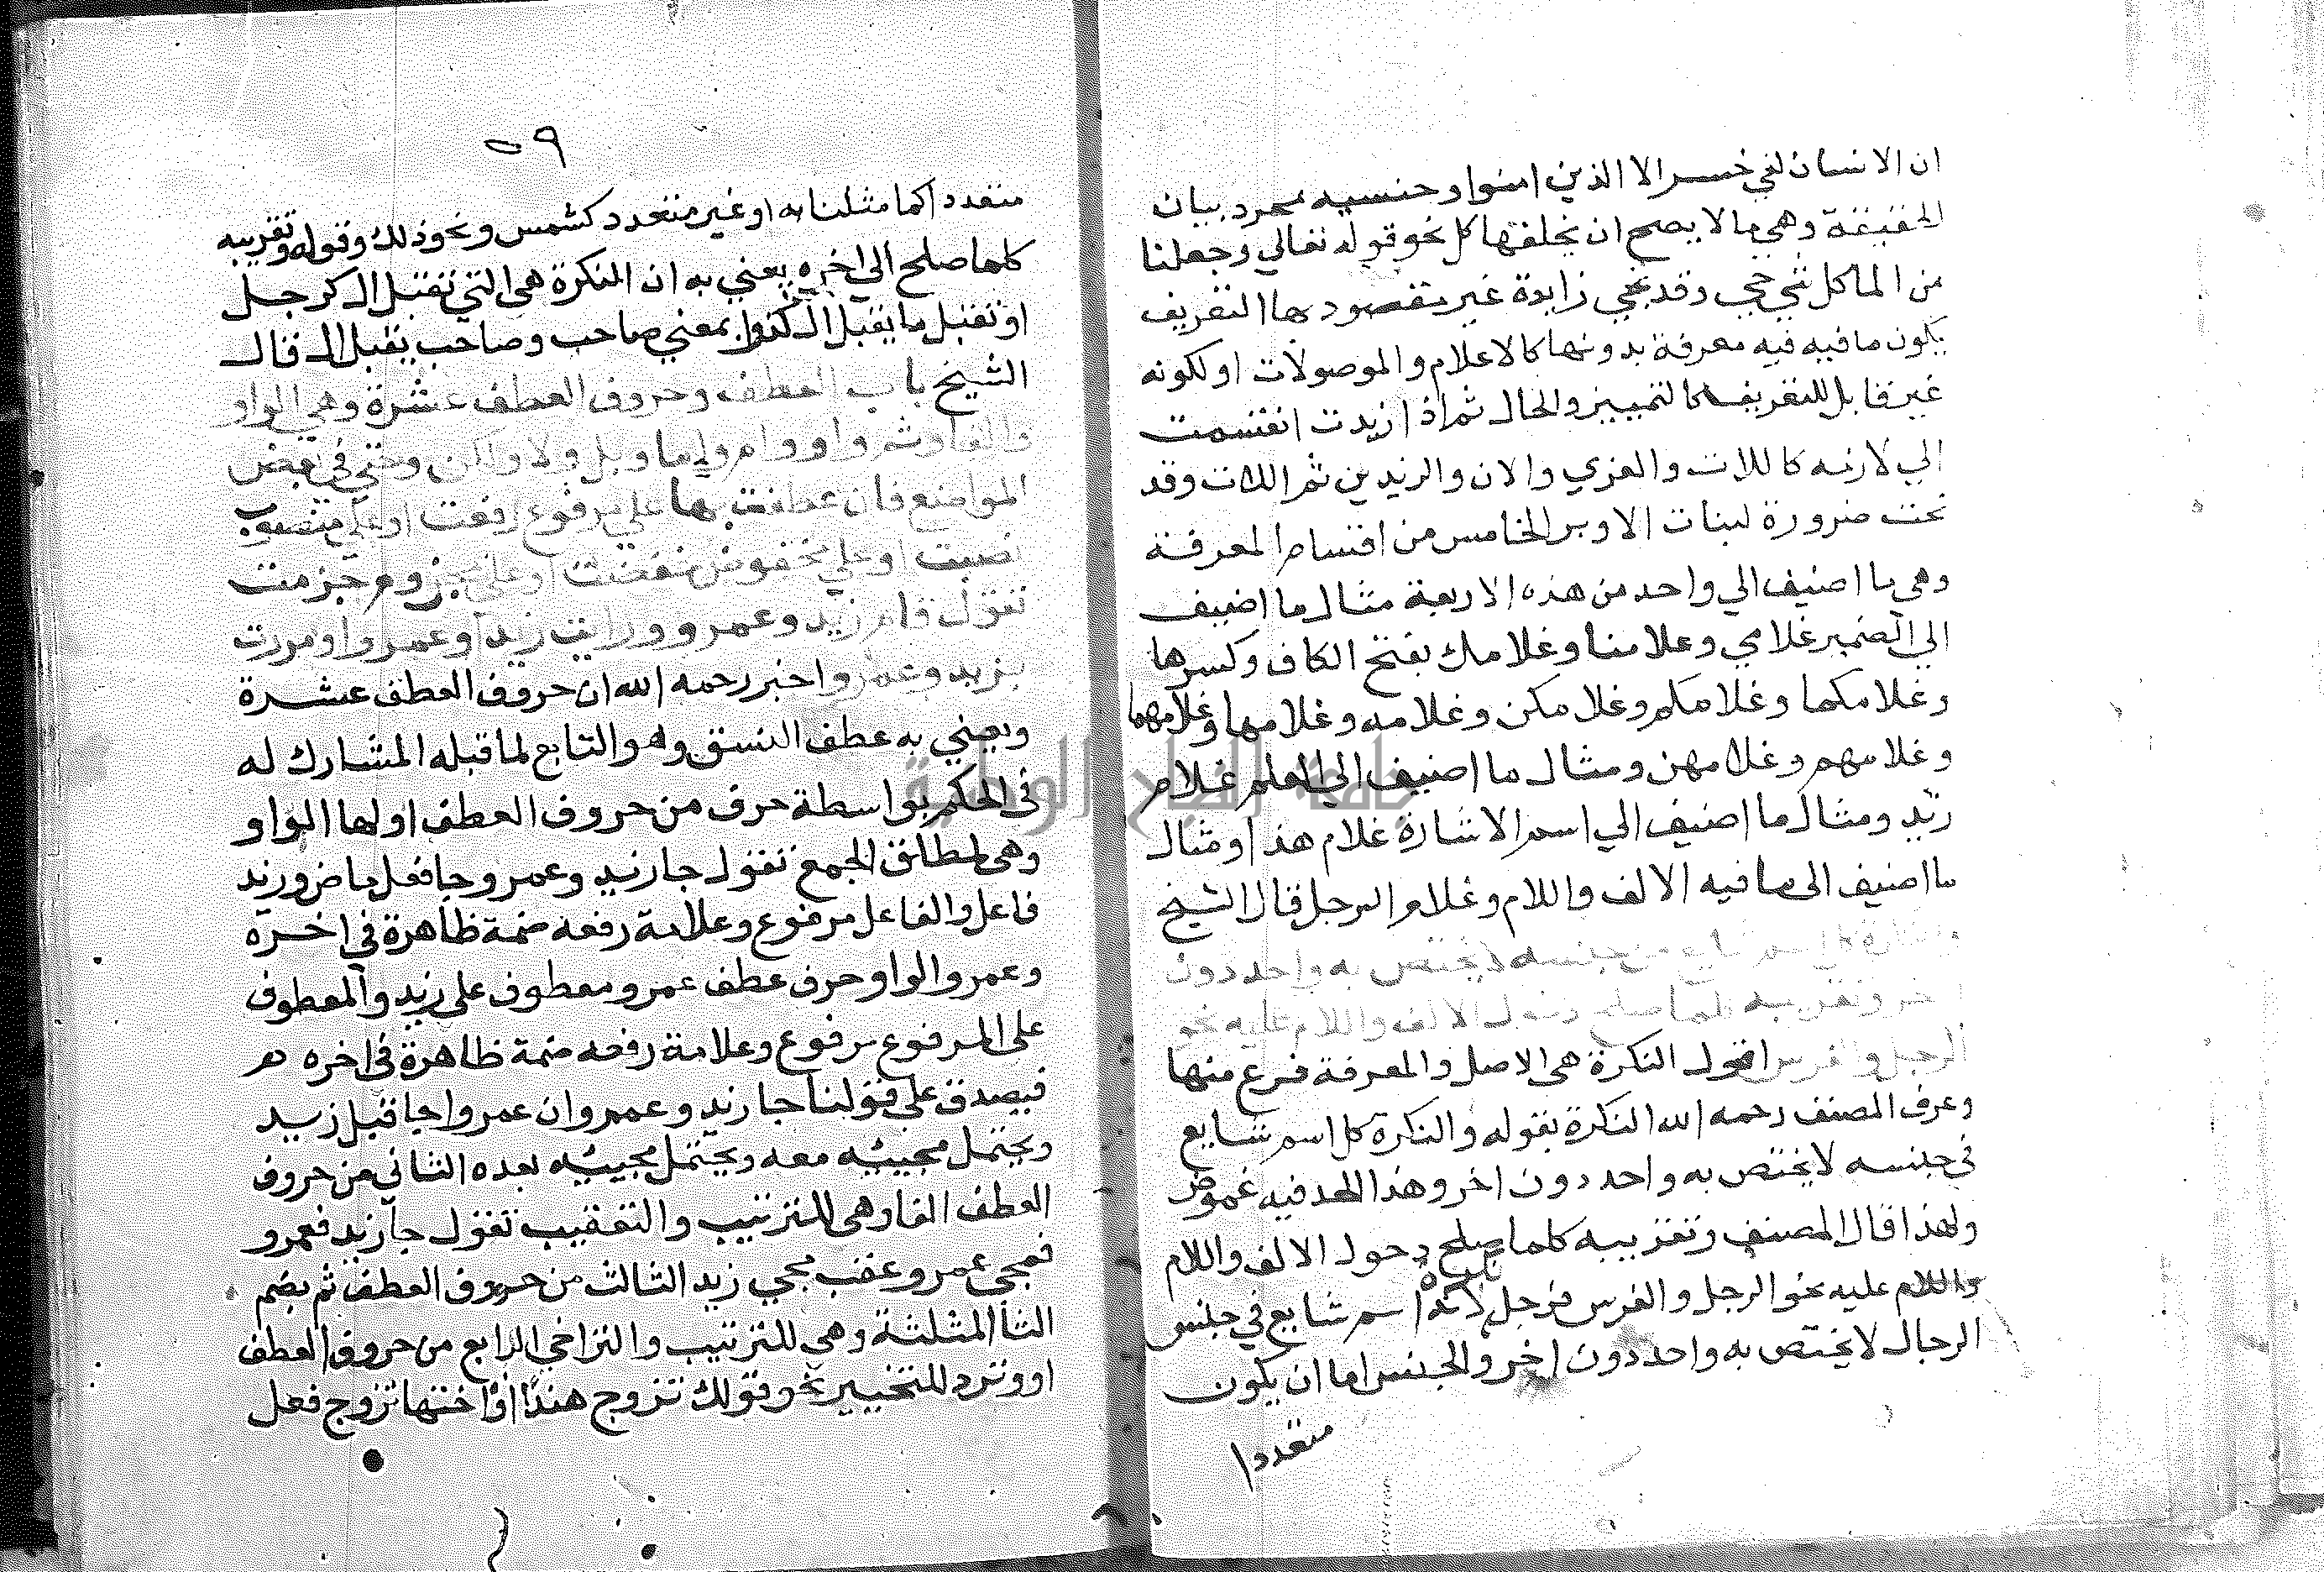 ان الانسان لفي خسر الا الذين امنوا وجنسيه بمجرد بيان
الحقيقة وهي ما لا يصح ان يخلفها كل نحو قوله تعالي وجعلنا
من الما كل شي حي وقد تجي زايدة غير مقصود بها التعريف
يكون ما فيه فيه معرفة بدونها كالاعلام والموصولات او لكونه
غير قابل للتعريف كالتمييز والحال ثم اذا زيدت انقسمت
الي لازمه كاللات والعزي والان والزيدين ثم اللات وقد
تحت ضرورة لبنات الاوبر الخامس من اقسام المعرفة
وهي ما اضيف الي واحد من هذه الاربعة مثال ما اضيف
الي الضمير غلامي وغلامنا وغلامك بفتح الكاف وكسرها
وغلامكما وغلامكم وغلامكن وغلامه وغلامها وغلامهما
وغلامهم وغلامهن ومثال ما اضيف الي العلم غلام
زيد ومثال ما اضيف الي اسم الاشارة غلام هذا ومثال
ما اضيف الى ما فيه الالف واللام وغلام الرجل قال الشيخ
والنكرة كل اسم شايع في جنسه لا يختص به واحد دون
اخر وتقريبه كلما صلح دخول الالف واللام عليه نحو
الرجل والفرس اقول النكرة هي الاصل والمعرفة فرع منها
وعرف المصنف رحمه الله النكرة بقوله والنكرة كل اسم شايع
في جنسه لا يختص به واحد دون اخر وهذا الحد فيه غموض
ولهذا قال المصنف وتقريبه كلما صلح دخول الالف واللام
واللام عليه نحو الرجل والفرس فرجل نكرة لانه اسم شايع في جنس
الرجال لا يختص به واحد دون اخر والجنس اما ان يكون
متعددا
٥٩
متعددا كما مثلنا به او غير متعدد كشمس ونحو ذلك وقوله وتقريبه
كلما صلح الي اخره يعني به ان النكرة هي التي تقبل ال كرجل
او تقبل ما يقبل ال كذو بمعني صاحب وصاحب يقبل ال قال
الشيخ باب العطف وحروف العطف عشرة وهي الواو
والفا وثم واو وام واما وبل ولا ولكن وحتي في بعض
المواضع فان عطفت بها علي مرفوع رفعت او علي منصوب
نصبت او علي مخفوض خفضت او علي مجزوم جزمت
تقول قام زيد وعمرو ورايت زيدا وعمروا ومررت
بزيد وعمرو اخبر رحمه الله ان حروف العطف عشرة
ويعني به عطف النسق وهو التابع لما قبله المشارك له
في الحكم بواسطة حرف من حروف العطف اولها الواو
وهي لمطلق الجمع تقول جا زيد وعمرو جا فعل ماض وزيد
فاعل والفاعل مرفوع وعلامة رفعه ضمة ظاهرة في اخره
وعمرو الواو حرف عطف عمرو معطوف على زيد والمعطوف
على المرفوع مرفوع وعلامة رفعه ضمة ظاهرة في اخره هم
فيصدق علي قولنا جا زيد وعمرو ان عمروا جا قبل زيد
ويحتمل مجيئه معه ويحتمل مجيئه بعده الثاني من حروف
العطف الفا وهي للترتيب والتعقيب تقول جا زيد فعمرو
فمجي عمرو عقب مجي زيد الثالث من حروف العطف ثم بضم
الثا المثلثة وهي للترتيب والتراخي الرابع من حروف العطف
او وترد للتخيير نحو قولك تزوج هندا او اختها تزوج فعل
جامعة النجاح الوطنية